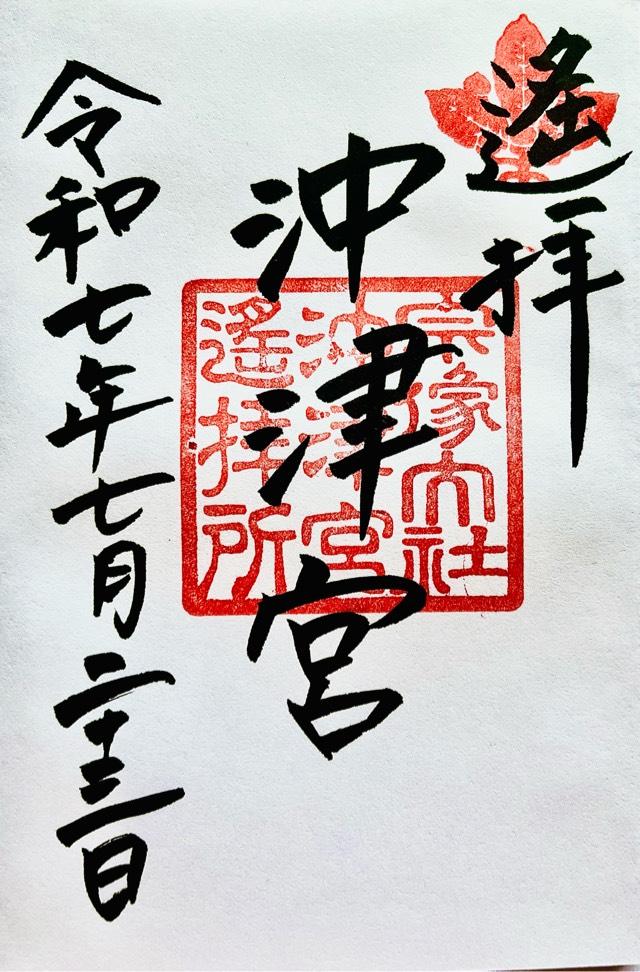 遙拝
沖津宮
令和七年七月二十三日
宗像大社
沖津宮
遙拝所